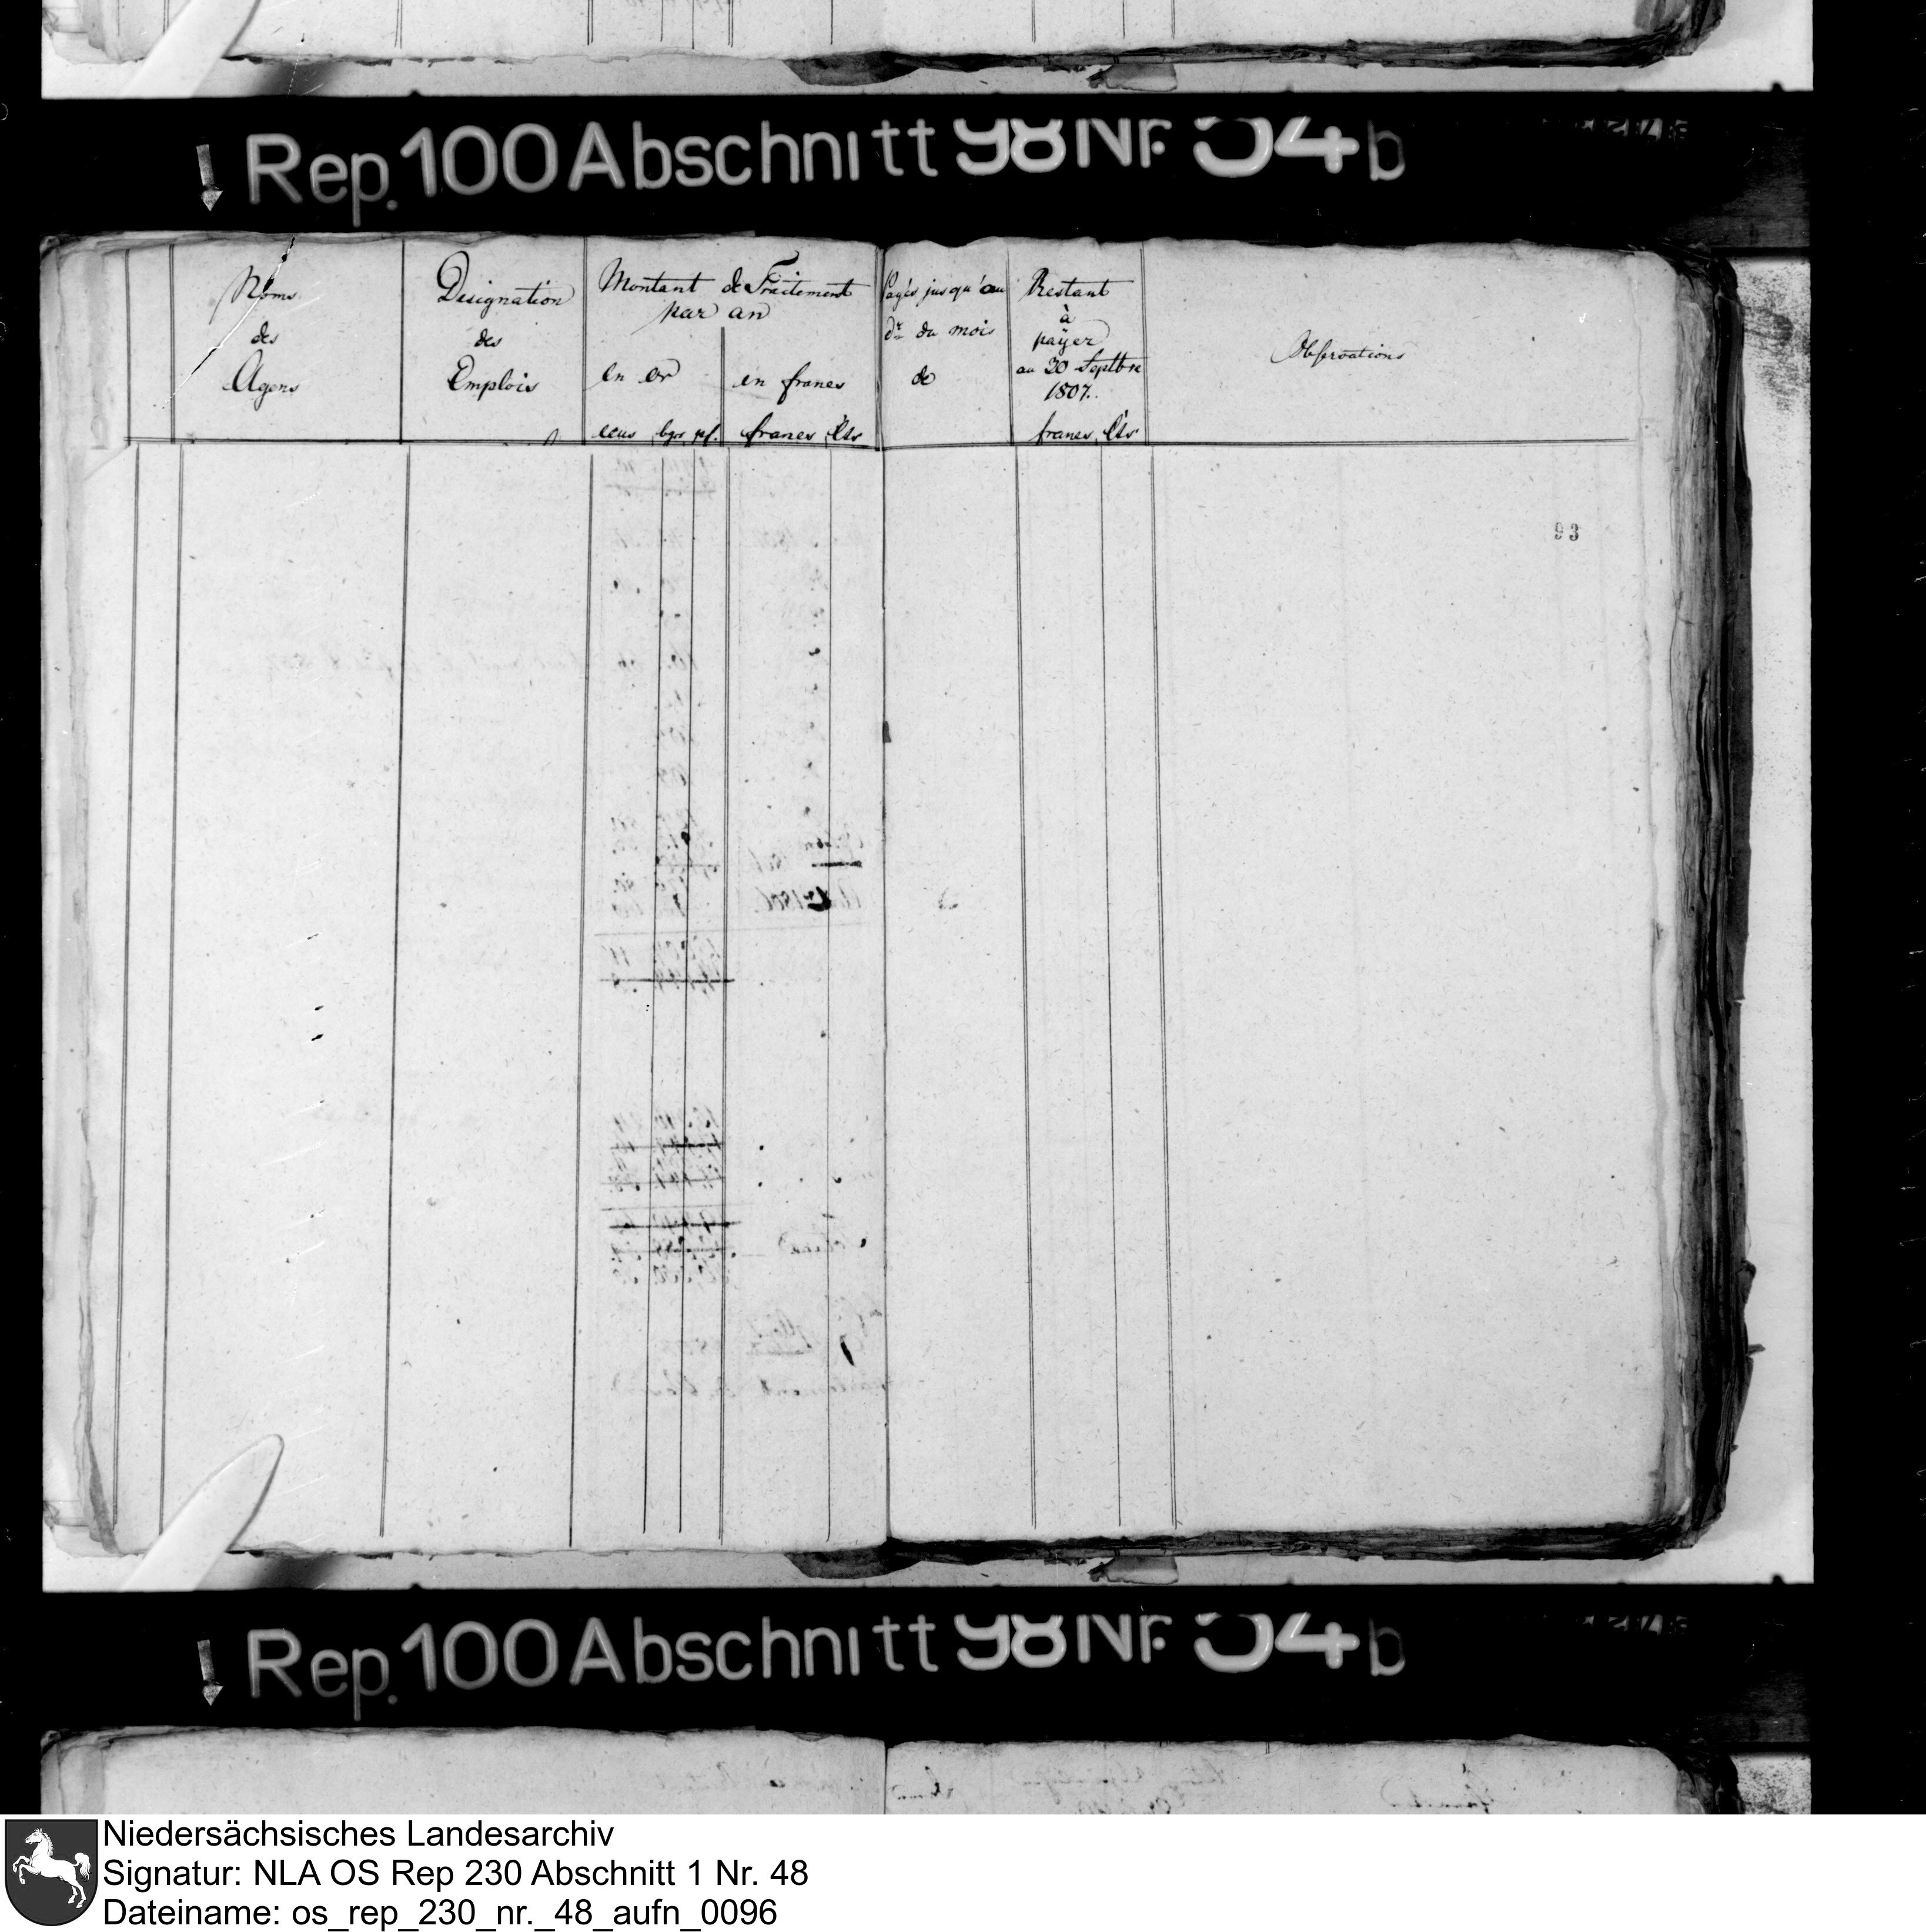 Rep. 100 Abschnitt 98 Nr. 54 b
Noms
des
Agens
Designation
des
Emplois
Montant de Traitement
par an
en or
ecus bgs pf.
en francs
francs Cts
Payés jusqu'au
dr du mois
de
Restant
à
payer
au 30 Septbre
1807.
francs Cts
Observations
93
Rep. 100 Abschnitt 98 Nr. 54 b
Niedersächsisches Landesarchiv
Signatur: NLA OS Rep 230 Abschnitt 1 Nr. 48
Dateiname: os_rep_230_nr._48_aufn_0096